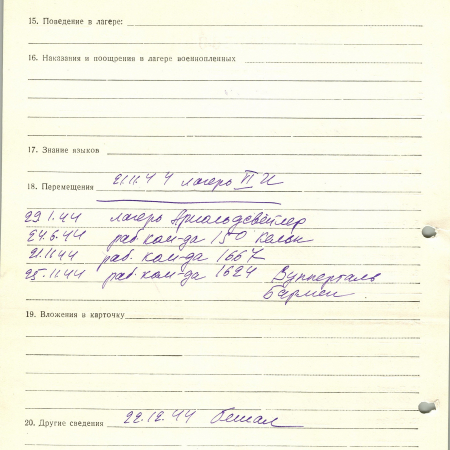 15. Поведение в лагере:
16. Наказания и поощрения в лагере военнопленных
17. Знание языков
18. Перемещения 21.11.44 лагерь VI И
29.1.44 лагерь Арнольдсвейлер
24.6.44 раб. ком-да 150 Кельн
21.11.44 раб. ком-да 1667
25.11.44 раб. ком-да 1624 Вупперталь
Бармен.
19. Вложения в карточку
20. Другие сведения 22.12.44 бежал